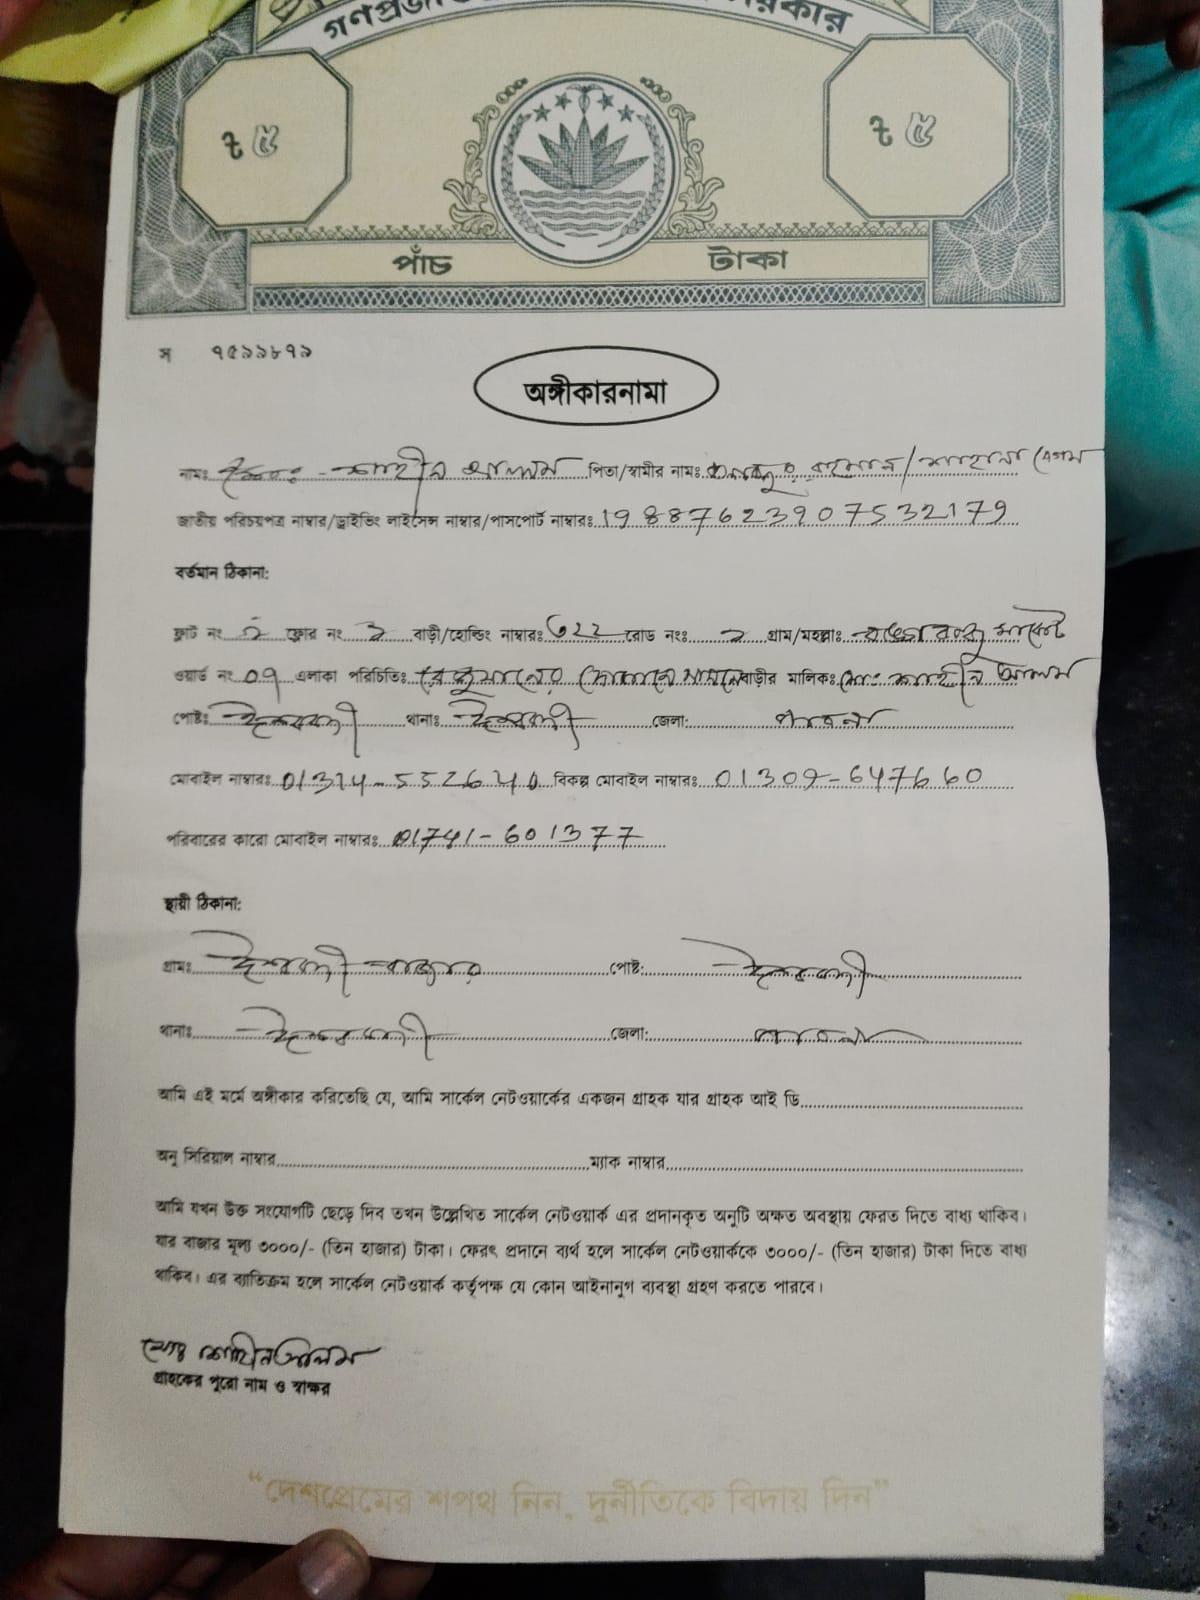 ৳ ৫
৳ ৫
পাঁচ টাকা
স ৭৫৯৯৮৭৯
অঙ্গীকারনামা
নামঃ শাহীন আলম পিতা/স্বামীর নামঃ রহমান/শাহানা বেগম
জাতীয় পরিচয়পত্র নাম্বার/ড্রাইভিং লাইসেন্স নাম্বার/পাসপোর্ট নাম্বারঃ 19887623907532179
বর্তমান ঠিকানা:
ফ্লাট নং ফ্লোর নং বাড়ী/হোল্ডিং নাম্বারঃ রোড নংঃ গ্রাম/মহল্লাঃ মার্কেট
ওয়ার্ড নং 09 এলাকা পরিচিতিঃ বাড়ীর মালিকঃ মোঃ শাহীন আলম
পোষ্টঃ ঈশ্বরদী থানাঃ ঈশ্বরদী জেলা: পাবনা
মোবাইল নাম্বারঃ বিকল্প মোবাইল নাম্বারঃ
পরিবারের কারো মোবাইল নাম্বারঃ 01741-601377
স্থায়ী ঠিকানা:
গ্রামঃ ঈশ্বরদী বাজার পোষ্ট: ঈশ্বরদী
থানাঃ ঈশ্বরদী জেলা: পাবনা
আমি এই মর্মে অঙ্গীকার করিতেছি যে, আমি সার্কেল নেটওয়ার্কের একজন গ্রাহক যার গ্রাহক আই ডি
অনু সিরিয়াল নাম্বার ম্যাক নাম্বার
আমি যখন উক্ত সংযোগটি ছেড়ে দিব তখন উল্লেখিত সার্কেল নেটওয়ার্ক এর প্রদানকৃত অনুটি অক্ষত অবস্থায় ফেরত দিতে বাধ্য থাকিব।
যার বাজার মূল্য ৩০০০/- (তিন হাজার) টাকা। ফেরৎ প্রদানে ব্যর্থ হলে সার্কেল নেটওয়ার্ককে ৩০০০/- (তিন হাজার) টাকা দিতে বাধ্য
থাকিব। এর ব্যতিক্রম হলে সার্কেল নেটওয়ার্ক কর্তৃপক্ষ যে কোন আইনানুগ ব্যবস্থা গ্রহণ করতে পারবে।
মোঃ শাহিন আলম
গ্রাহকের পুরো নাম ও স্বাক্ষর
“দেশপ্রেমের শপথ নিন, দুর্নীতিকে বিদায় দিন”